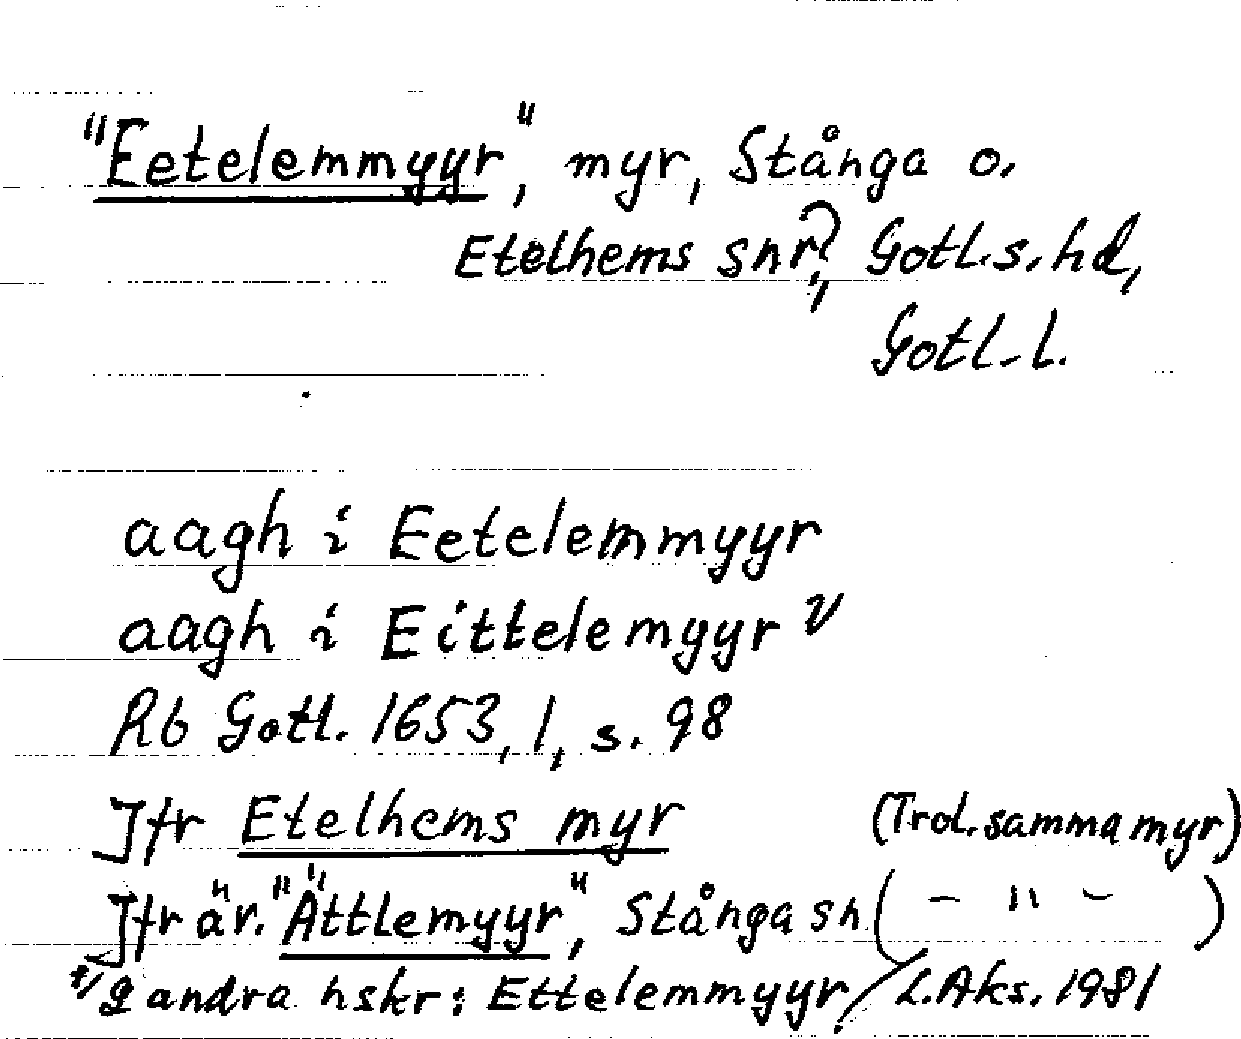 "Eetelemmyyr", myr, Stånga o.
Etelhems snr?, Gotl.s.hd,
Gotl. l.
aagh i Eetelemmyyr
aagh i Eittelemyyr v
Rb Gotl. 1653, 1, s. 98
Jfr Etelhems myr (Trol. samma myr)
Jfr är. "Ättlemyyr", Stånga sn (– " –)
1/ 2 andra hskr: Ettelemmyyr / L.Aks. 1981